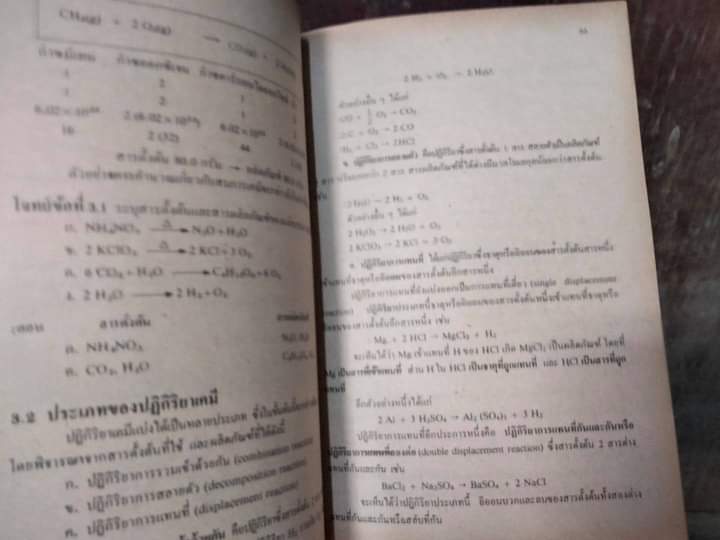 CH₄(g) + 2 O₂(g) → CO₂(g) +
ก๊าซมีเทน ก๊าซออกซิเจน ก๊าซคาร์บอนไดออกไซด์
1 2 1
1 2 1
6.02 × 10²³ 2 (6.02 × 10²³) 6.02 × 10²³
16 2 (32) 44
สารตั้งต้น 80.0 กรัม → ผลิตภัณฑ์
โจทย์ข้อที่ 3.1 ระบุสารตั้งต้นและสารผลิตภัณฑ์
ก. NH₄NO₃ → N₂O + H₂O
ข. 2 KClO₃ → 2 KCl + 3 O₂
ค. 6 CO₂ + H₂O → C₆H₁₂O₆ + 6 O₂
ง. 2 H₂O → 2 H₂ + O₂
ตอบ สารตั้งต้น
ก. NH₄NO₃
ค. CO₂, H₂O
3.2 ประเภทของปฏิกิริยาเคมี
ปฏิกิริยาเคมีแบ่งได้เป็นหลายประเภท ซึ่งในชั้นต้นนี้
โดยพิจารณาจากสารตั้งต้นที่ใช้ และผลิตภัณฑ์ที่ได้ดังนี้
ก. ปฏิกิริยาการรวมเข้าด้วยกัน (combination reaction
ข. ปฏิกิริยาการสลายตัว (decomposition reaction)
ค. ปฏิกิริยาการแทนที่ (displacement reaction)
คือปฏิกิริยาซึ่งสารตั้งต้น 2
2 H₂ + O₂ → 2 H₂O
ตัวอย่างอื่น ๆ ได้แก่
CO + ½ O₂ → CO₂
2 C + O₂ → 2 CO
H₂ + Cl₂ → 2 HCl
ข. ปฏิกิริยาการสลายตัว คือปฏิกิริยาซึ่งสารตั้งต้น 1 สาร สลายตัวเป็นผลิตภัณฑ์
2 สาร สารผลิตภัณฑ์ที่ได้ต่างมีมวลโมเลกุลน้อยกว่าสารตั้งต้น
→ 2 H₂ + O₂
ตัวอย่างอื่น ๆ ได้แก่
2 H₂O₂ → 2 H₂O + O₂
2 KClO₃ → 2 KCl + 3 O₂
ค. ปฏิกิริยาการแทนที่ ได้แก่ปฏิกิริยาซึ่งธาตุหรือไอออนของสารตั้งต้นสารหนึ่ง
เข้าแทนที่ธาตุหรือไอออนของสารตั้งต้นอีกสารหนึ่ง
ปฏิกิริยาการแทนที่ยังแบ่งออกเป็นการแทนที่เดี่ยว (single displacement
reaction) ปฏิกิริยาประเภทนี้ธาตุหรือไอออนของสารตั้งต้นหนึ่งเข้าแทนที่ธาตุหรือ
ไอออนของสารตั้งต้นอีกสารหนึ่ง เช่น
Mg + 2 HCl → MgCl₂ + H₂
จะเห็นได้ว่า Mg เข้าแทนที่ H ของ HCl เกิด MgCl₂ เป็นผลิตภัณฑ์ โดยที่
Mg เป็นสารที่เข้าแทนที่ ส่วน H ใน HCl เป็นธาตุที่ถูกแทนที่ และ HCl เป็นสารที่ถูก
แทนที่
อีกตัวอย่างหนึ่งได้แก่
2 Al + 3 H₂SO₄ → Al₂ (SO₄)₃ + 3 H₂
ปฏิกิริยาการแทนที่อีกประการหนึ่งคือ ปฏิกิริยาการแทนที่กันและกันหรือ
ปฏิกิริยาการแทนที่สองต่อ (double displacement reaction) ซึ่งสารตั้งต้น 2 สารต่าง
แทนที่กันและกัน เช่น
BaCl₂ + Na₂SO₄ → BaSO₄ + 2 NaCl
จะเห็นได้ว่าปฏิกิริยาประเภทนี้ อิออนบวกและลบของสารตั้งต้นทั้งสองต่าง
แทนที่กันและกันหรือสลับที่กัน